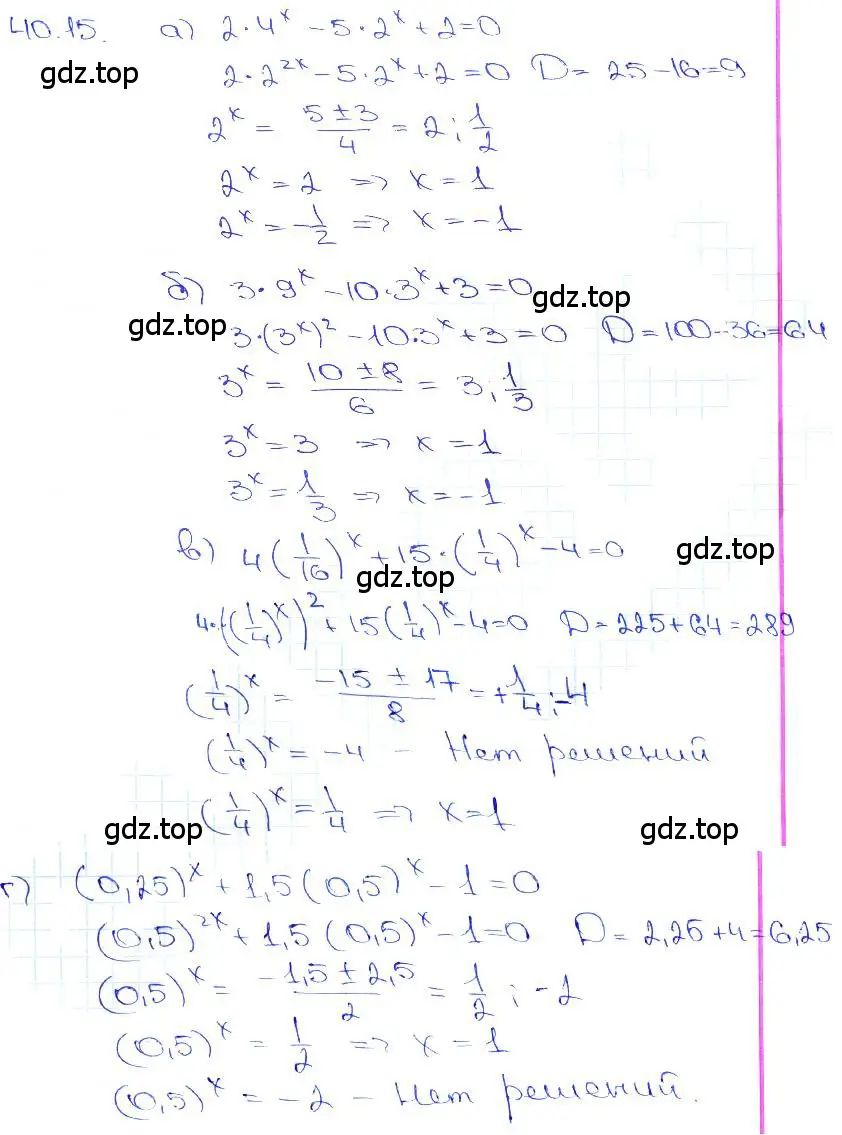 40.15. а) 2·4^x - 5·2^x + 2 = 0
gdz.top
2·2^{2x} - 5·2^x + 2 = 0 D = 25 - 16 = 9
2^x = \frac{5 ± 3}{4} = 2; \frac{1}{2}
2^x = 2 => x = 1
2^x = \frac{1}{2} => x = -1
б) 3·9^x - 10·3^x + 3 = 0
gdz.top
gdz.top
3·(3^x)^2 - 10·3^x + 3 = 0 D = 100 - 36 = 64
3^x = \frac{10 ± 8}{6} = 3; \frac{1}{3}
3^x = 3 => x = 1
3^x = \frac{1}{3} => x = -1
в) 4(\frac{1}{16})^x + 15·(\frac{1}{4})^x - 4 = 0
gdz.top
gdz.top
4·((\frac{1}{4})^x)^2 + 15(\frac{1}{4})^x - 4 = 0 D = 225 + 64 = 289
(\frac{1}{4})^x = \frac{-15 ± 17}{8} = +\frac{1}{4}; -4
(\frac{1}{4})^x = -4 - Нет решений
(\frac{1}{4})^x = \frac{1}{4} => x = 1
gdz.top
gdz.top
г) (0,25)^x + 1,5(0,5)^x - 1 = 0
(0,5)^{2x} + 1,5(0,5)^x - 1 = 0 D = 2,25 + 4 = 6,25
(0,5)^x = \frac{-1,5 ± 2,5}{2} = \frac{1}{2}; -2
(0,5)^x = \frac{1}{2} => x = 1
(0,5)^x = -2 - Нет решений.